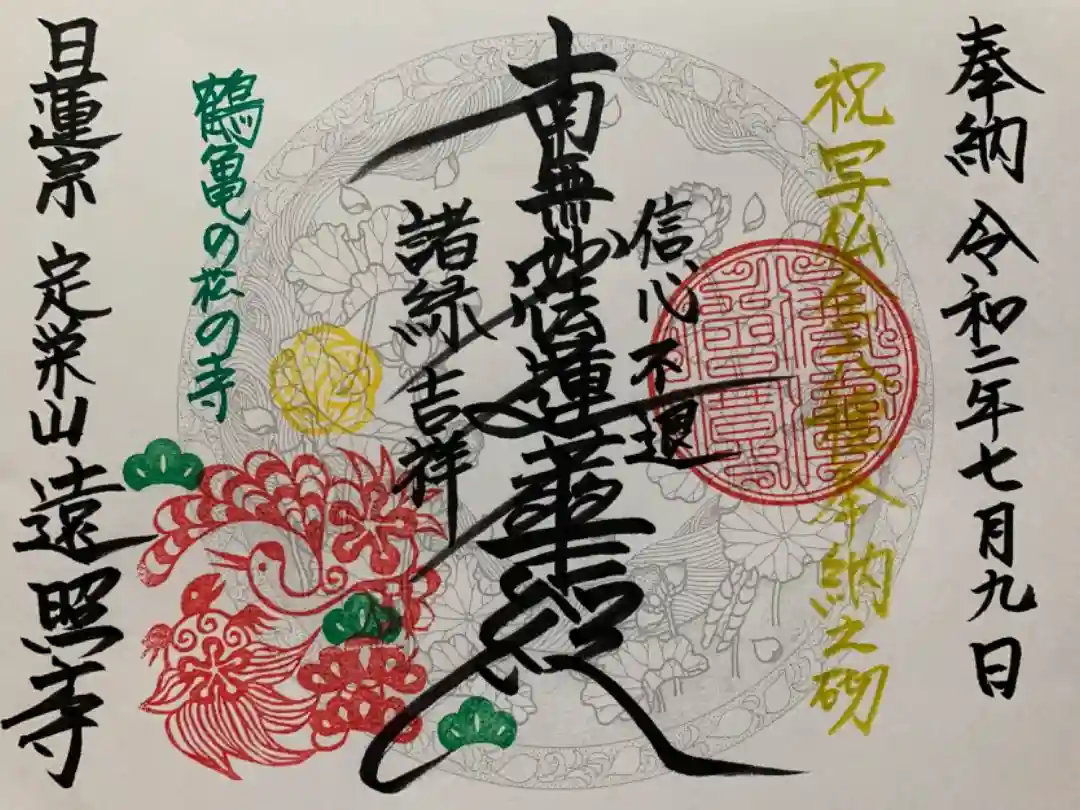 奉納 令和二年七月九日
祝写仏 奉納之砌
信心不退
南無妙法蓮華経
諸縁吉祥
鶴亀の花の寺
日蓮宗 定栄山 遠照寺